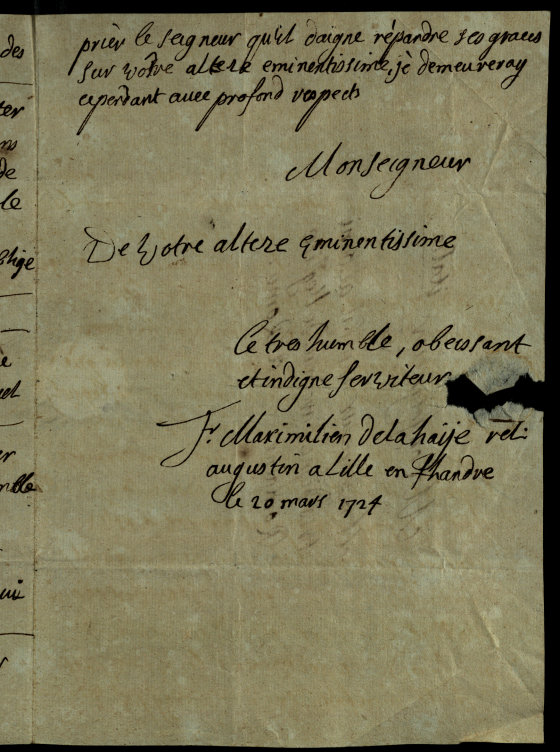 prier le seigneur qu'il daigne répandre ses graces
sur votre alteze eminentissime, je demeureray
cependant avec profond respects
Monseigneur
De votre alteze eminentissime
le tres humble, obeissant
et indigne serviteur
Fr. Maximilien delahaije rel:
augustin a Lille en fhandre
le 20 mars 1724
des
ter
ns
de
le
blige
e
er
mble